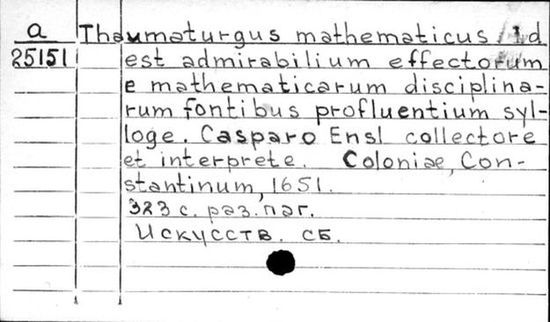 a Thaumaturgus mathematicus, id
25151 est admirabilium effectorum
e mathematicarum disciplina-
rum fontibus profluentium syl-
loge. Casparo Ensl collectore
et interprete. Coloniae, Con-
stantinum, 1651.
323 с. раз. паг.
Искусств. сб.